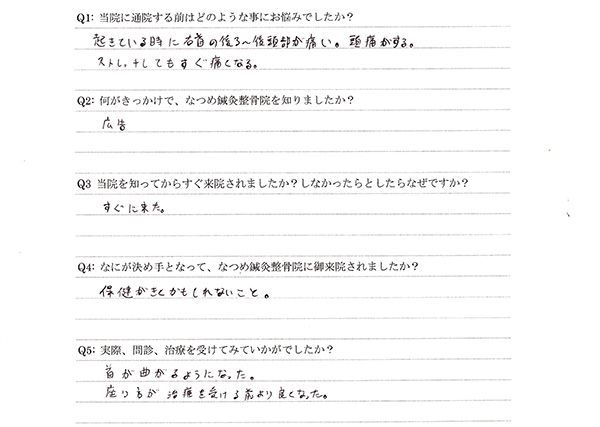 Q1: 当院に通院する前はどのような事にお悩みでしたか？
起きている時に右首の後ろ〜後頭部が痛い。頭痛がする。
ストレッチしてもすぐ痛くなる。
Q2: 何がきっかけで、なつめ鍼灸整骨院を知りましたか？
広告
Q3 当院を知ってからすぐ来院されましたか？しなかったらとしたらなぜですか？
すぐに来た。
Q4: なにが決め手となって、なつめ鍼灸整骨院に御来院されましたか？
保健がきくかもしれないこと。
Q5: 実際、問診、治療を受けてみていかがでしたか？
首が曲がるようになった。
座り方が治療を受ける前より良くなった。